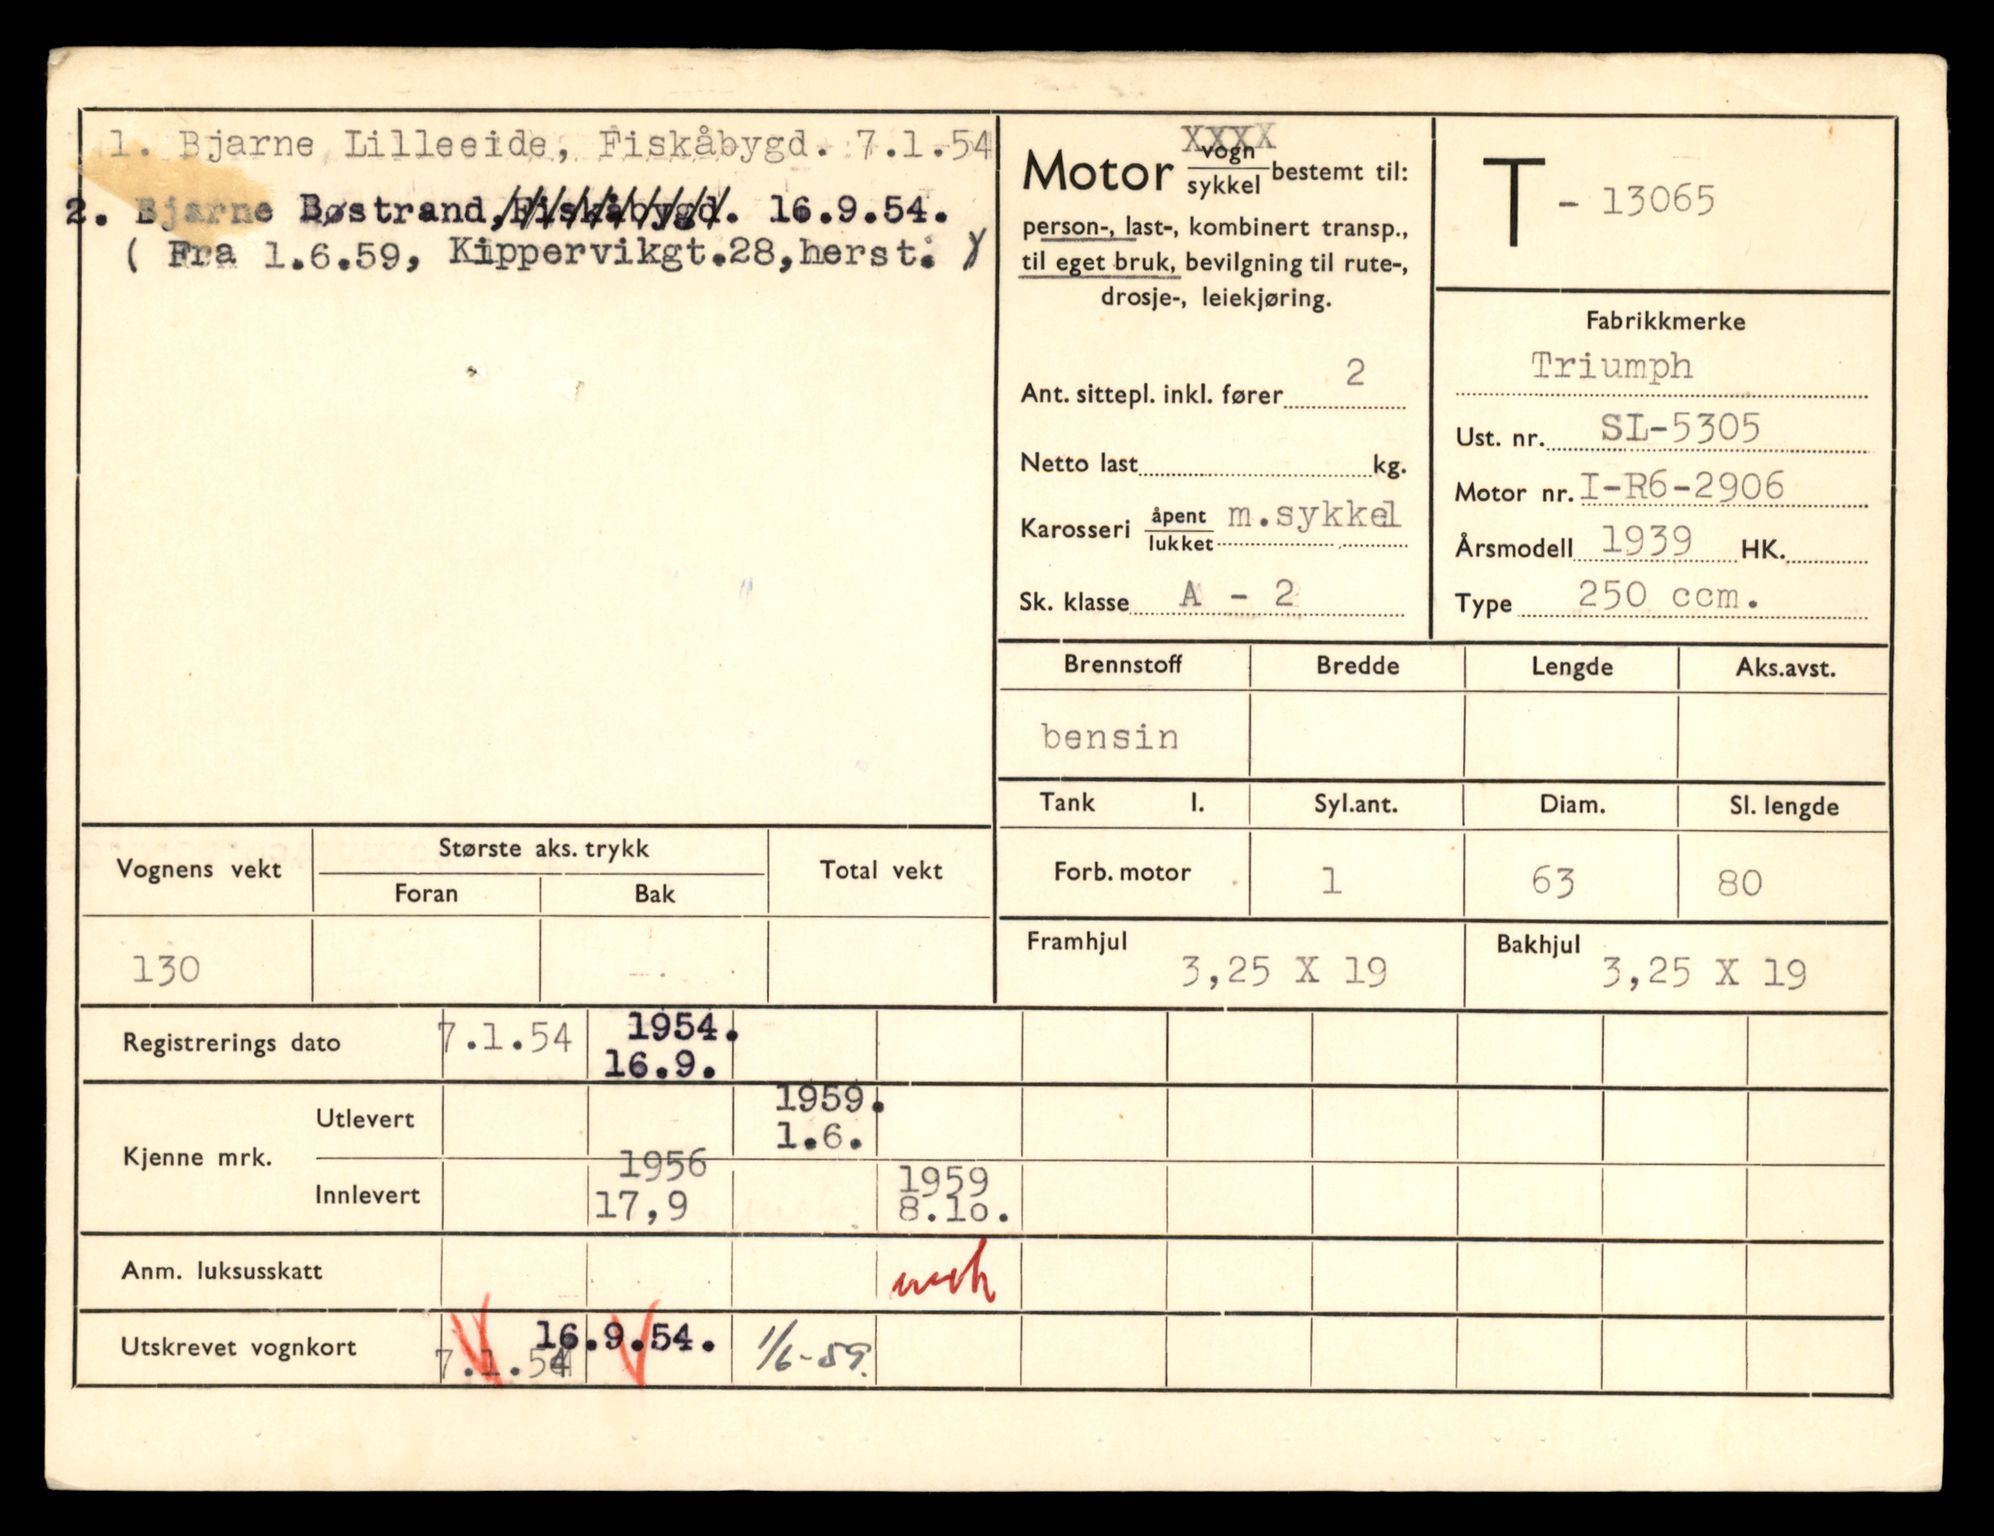 1. Bjarne Lilleeide, Fiskåbygd. 7.1.54
2. Bjarne Bøstrand, Fiskåbygd. 16.9.54.
( Fra 1.6.59, Kippervikgt.28, herst. )
XXXX
Motor vogn/sykkel bestemt til:
person-, last-, kombinert transp.,
til eget bruk, bevilgning til rute-,
drosje-, leiekjøring.
Ant. sittepl. inkl. fører 2
Netto last kg.
Karosseri åpent/lukket m.sykkel
Sk. klasse A - 2
T - 13065
Fabrikkmerke
Triumph
Ust. nr. SL-5305
Motor nr. I-R6-2906
Årsmodell 1939 HK.
Type 250 ccm.
Brennstoff Bredde Lengde Aks.avst.
bensin
Tank l. Syl.ant. Diam. Sl. lengde
Forb. motor 1 63 80
Framhjul 3,25 X 19 Bakhjul 3,25 X 19
Vognens vekt Største aks. trykk Total vekt
Foran Bak
130
Registrerings dato 7.1.54 1954. 16.9.
Kjenne mrk.
Utlevert 1959. 1.6.
Innlevert 1956 17,9 1959 8.10.
Anm. luksusskatt
Utskrevet vognkort 7.1.54 16.9.54. 1/6-59.